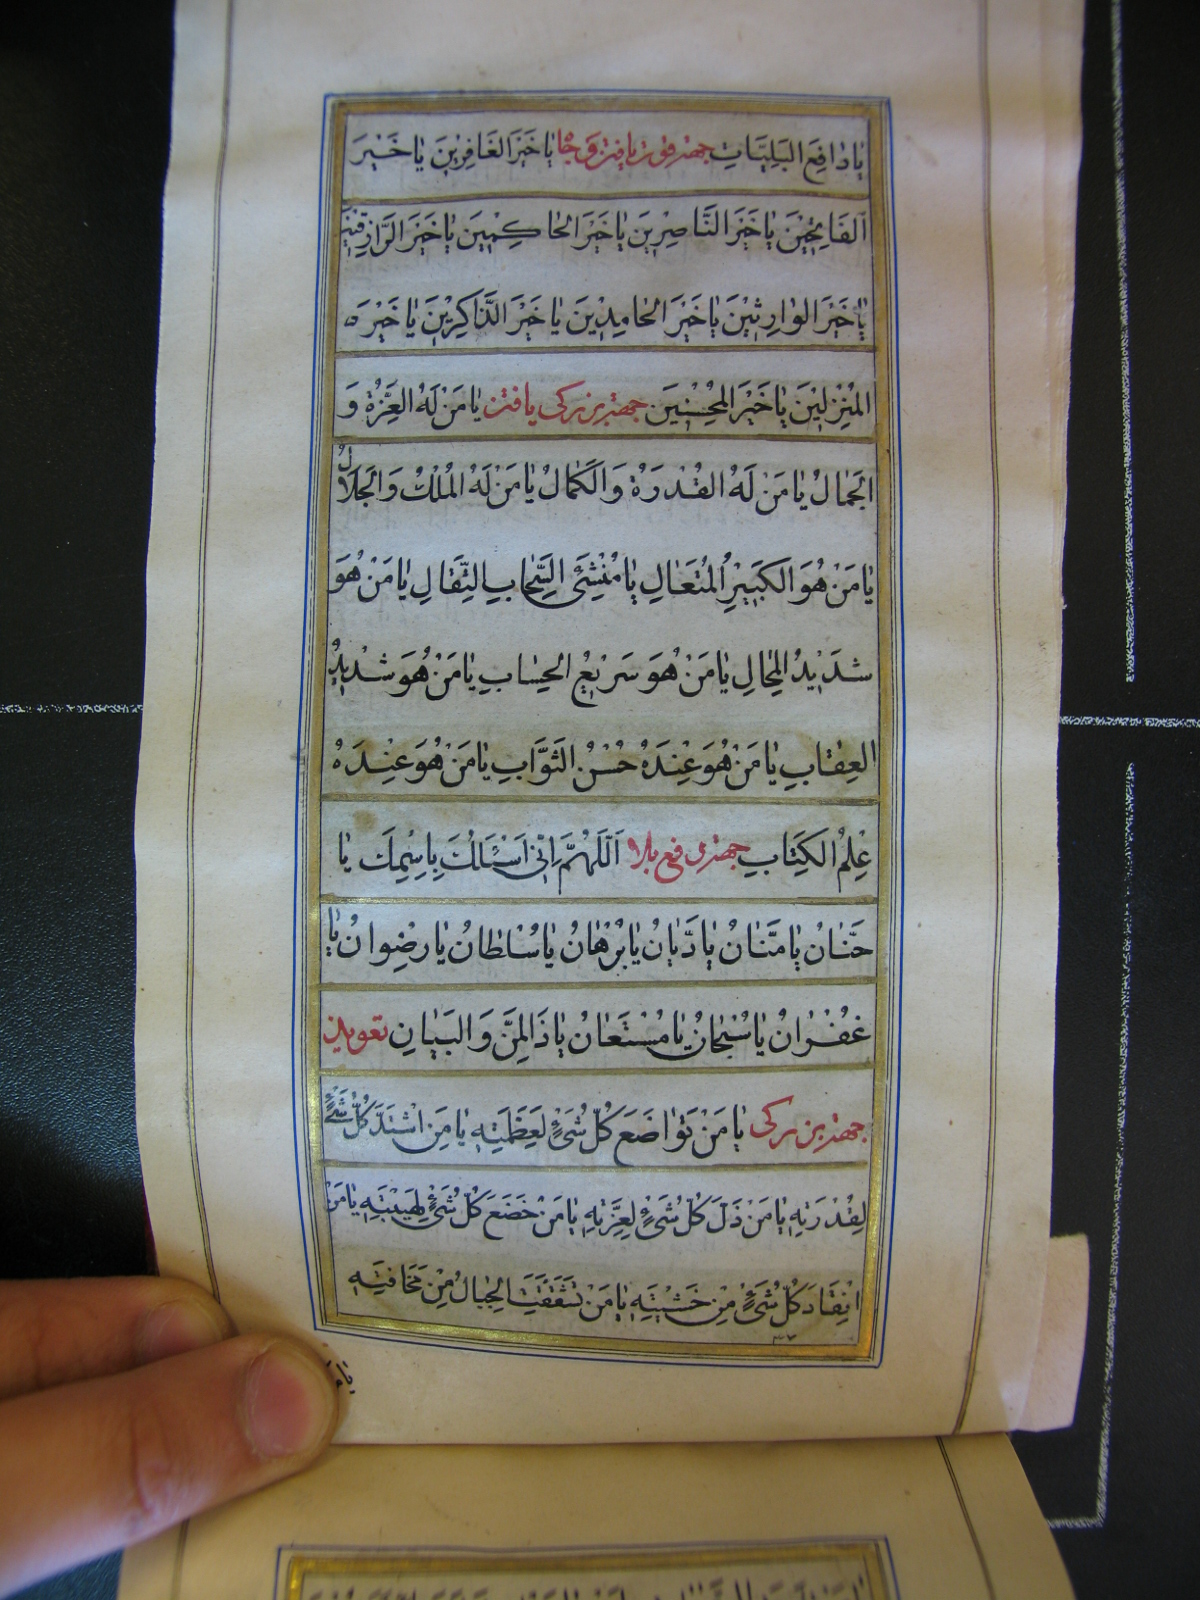 يَا دَافِعَ الْبَلِيَّاتِ جهت قوت يافتن و جا يَا خَيْرَ الْغَافِرِينَ يَا خَيْرَ
اَلْفَاتِحِينَ يَا خَيْرَ النَّاصِرِينَ يَا خَيْرَ الْحَاكِمِينَ يَا خَيْرَ الرَّازِقِينَ
يَا خَيْرَ الْوَارِثِينَ يَا خَيْرَ الْحَامِدِينَ يَا خَيْرَ الذَّاكِرِينَ يَا خَيْرَ
الْمُنْزِلِينَ يَا خَيْرَ الْمُحْسِنِينَ جهت بزركى يافتن يَا مَنْ لَهُ الْعِزَّةُ وَ
الْجَمَالُ يَا مَنْ لَهُ الْقُدْرَةُ وَالْكَمَالُ يَا مَنْ لَهُ الْمُلْكُ وَالْجَلَالُ
يَا مَنْ هُوَ الْكَبِيرُ الْمُتَعَالِ يَا مُنْشِئَ السَّحَابِ الثِّقَالِ يَا مَنْ هُوَ
شَدِيدُ الْمِحَالِ يَا مَنْ هُوَ سَرِيعُ الْحِسَابِ يَا مَنْ هُوَ شَدِيدُ
الْعِقَابِ يَا مَنْ هُوَ عِنْدَهُ حُسْنُ الثَّوَّابِ يَا مَنْ هُوَ عِنْدَهُ
عِلْمُ الْكِتَابِ جهت دفع بلا اَللّٰهُمَّ اِنِّى اَسْئَلُكَ بِاسْمِكَ يَا
حَنَّانُ يَا مَنَّانُ يَا دَيَّانُ يَا بُرْهَانُ يَا سُلْطَانُ يَا رِضْوَانُ يَا
غُفْرَانُ يَا سُبْحَانُ يَا مُسْتَعَانُ يَا ذَا الْمَنِّ وَالْبَيَانِ تعويذ
جهت بزركى يَا مَنْ تَوَاضَعَ كُلُّ شَىْءٍ لِعَظَمَتِهِ يَا مَنِ اسْتَنَدَ كُلُّ شَىْءٍ
لِقُدْرَتِهِ يَا مَنْ ذَلَّ كُلُّ شَىْءٍ لِعِزَّتِهِ يَا مَنْ خَضَعَ كُلُّ شَىْءٍ لِهَيْبَتِهِ يَا مَنِ
انْقَادَ كُلُّ شَىْءٍ مِنْ خَشْيَتِهِ يَا مَنْ تَشَقَّقَتِ الْجِبَالُ مِنْ مَخَافَتِهِ